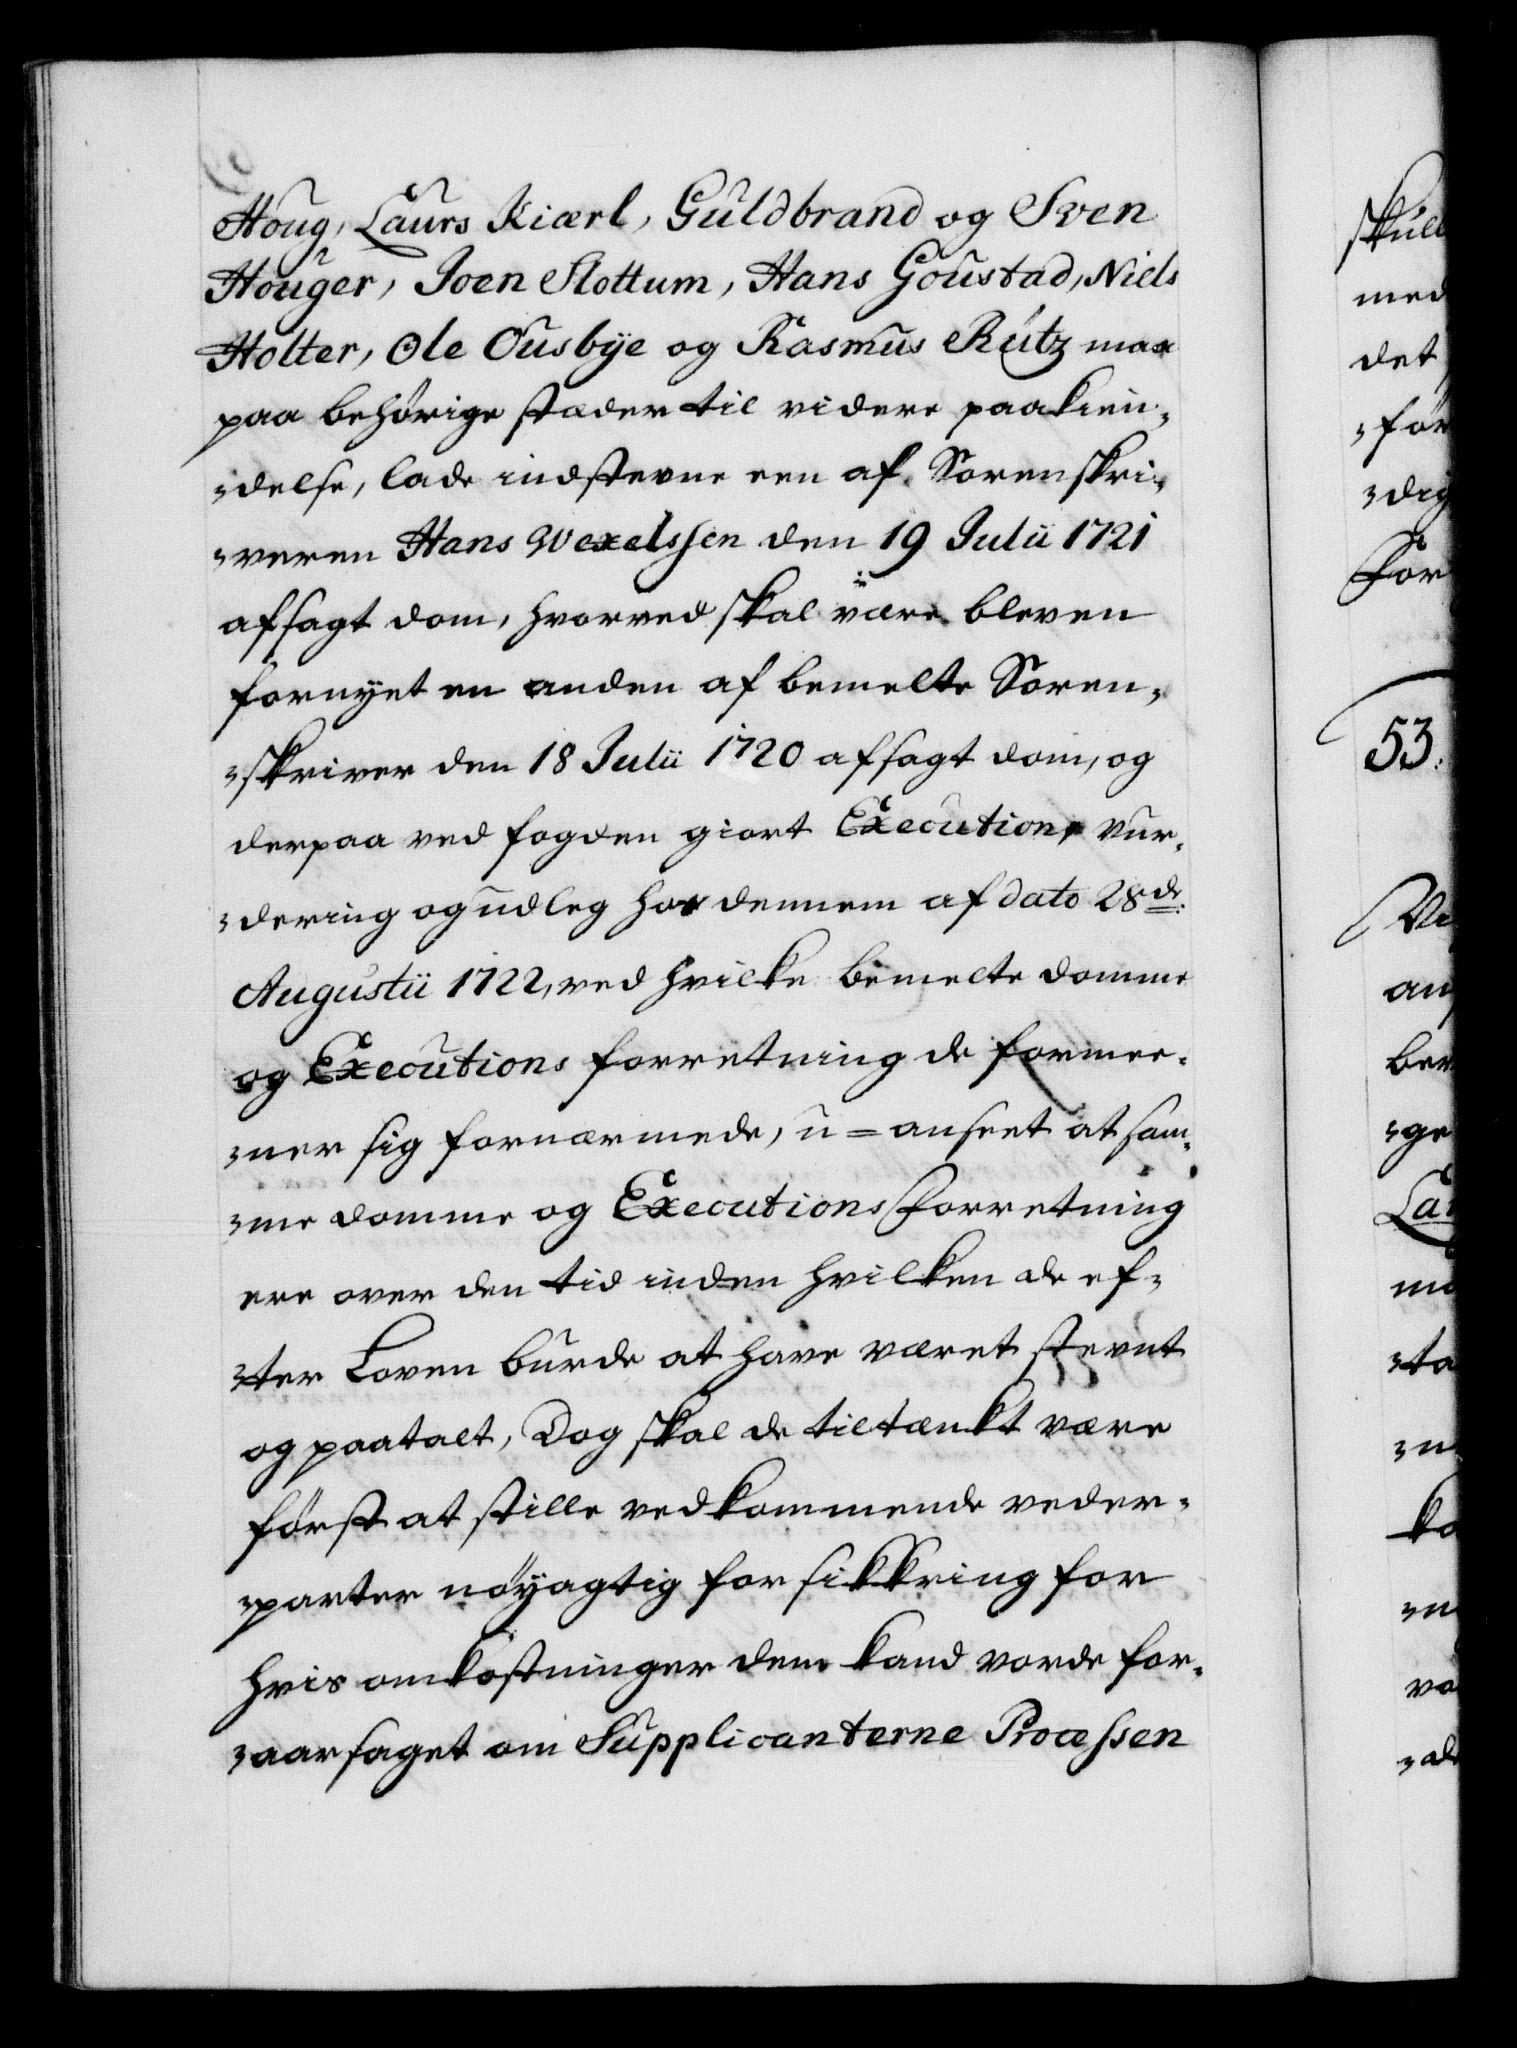 Houg, Laurs Kiærl, Guldbrand og Sven
Houger, Joen Slottum, Hans Goustad, Niels
Holter, Ole Ousbÿe og Rasmus Rütz maa
paa behörige stæder til videre paakien-
delse, lade indstevne een af Sorenskri-
veren Hans Wexelssen den 19 Julii 1721
afsagt dom, hvorved skal være bleven
fornyet en anden af bemelte Soren-
skriver den 18 Julii 1720 afsagt dom, og
derpaa ved fogden giort Execution, vur-
dering og udleg hos dennem af dato 28de
Augustii 1722, ved hvilke bemelte domme
og Executions forretning de formee-
ner sig fornærmede, u=anseet at sam-
me domme og Executions forretning
ere over den tid inden hvilken de ef-
ter Loven burde at have været stevnt
og paatalt, Dog skal de tiltænkt være
först at stille vedkommende veder-
parter nöÿagtig forsikkring for
hvis omkostninger dem kand vorde for-
aarsaget om Supplicanterne Processen
skull
med
det
för
dig
For
53.
Vi
an
ber
ge
ta
ko